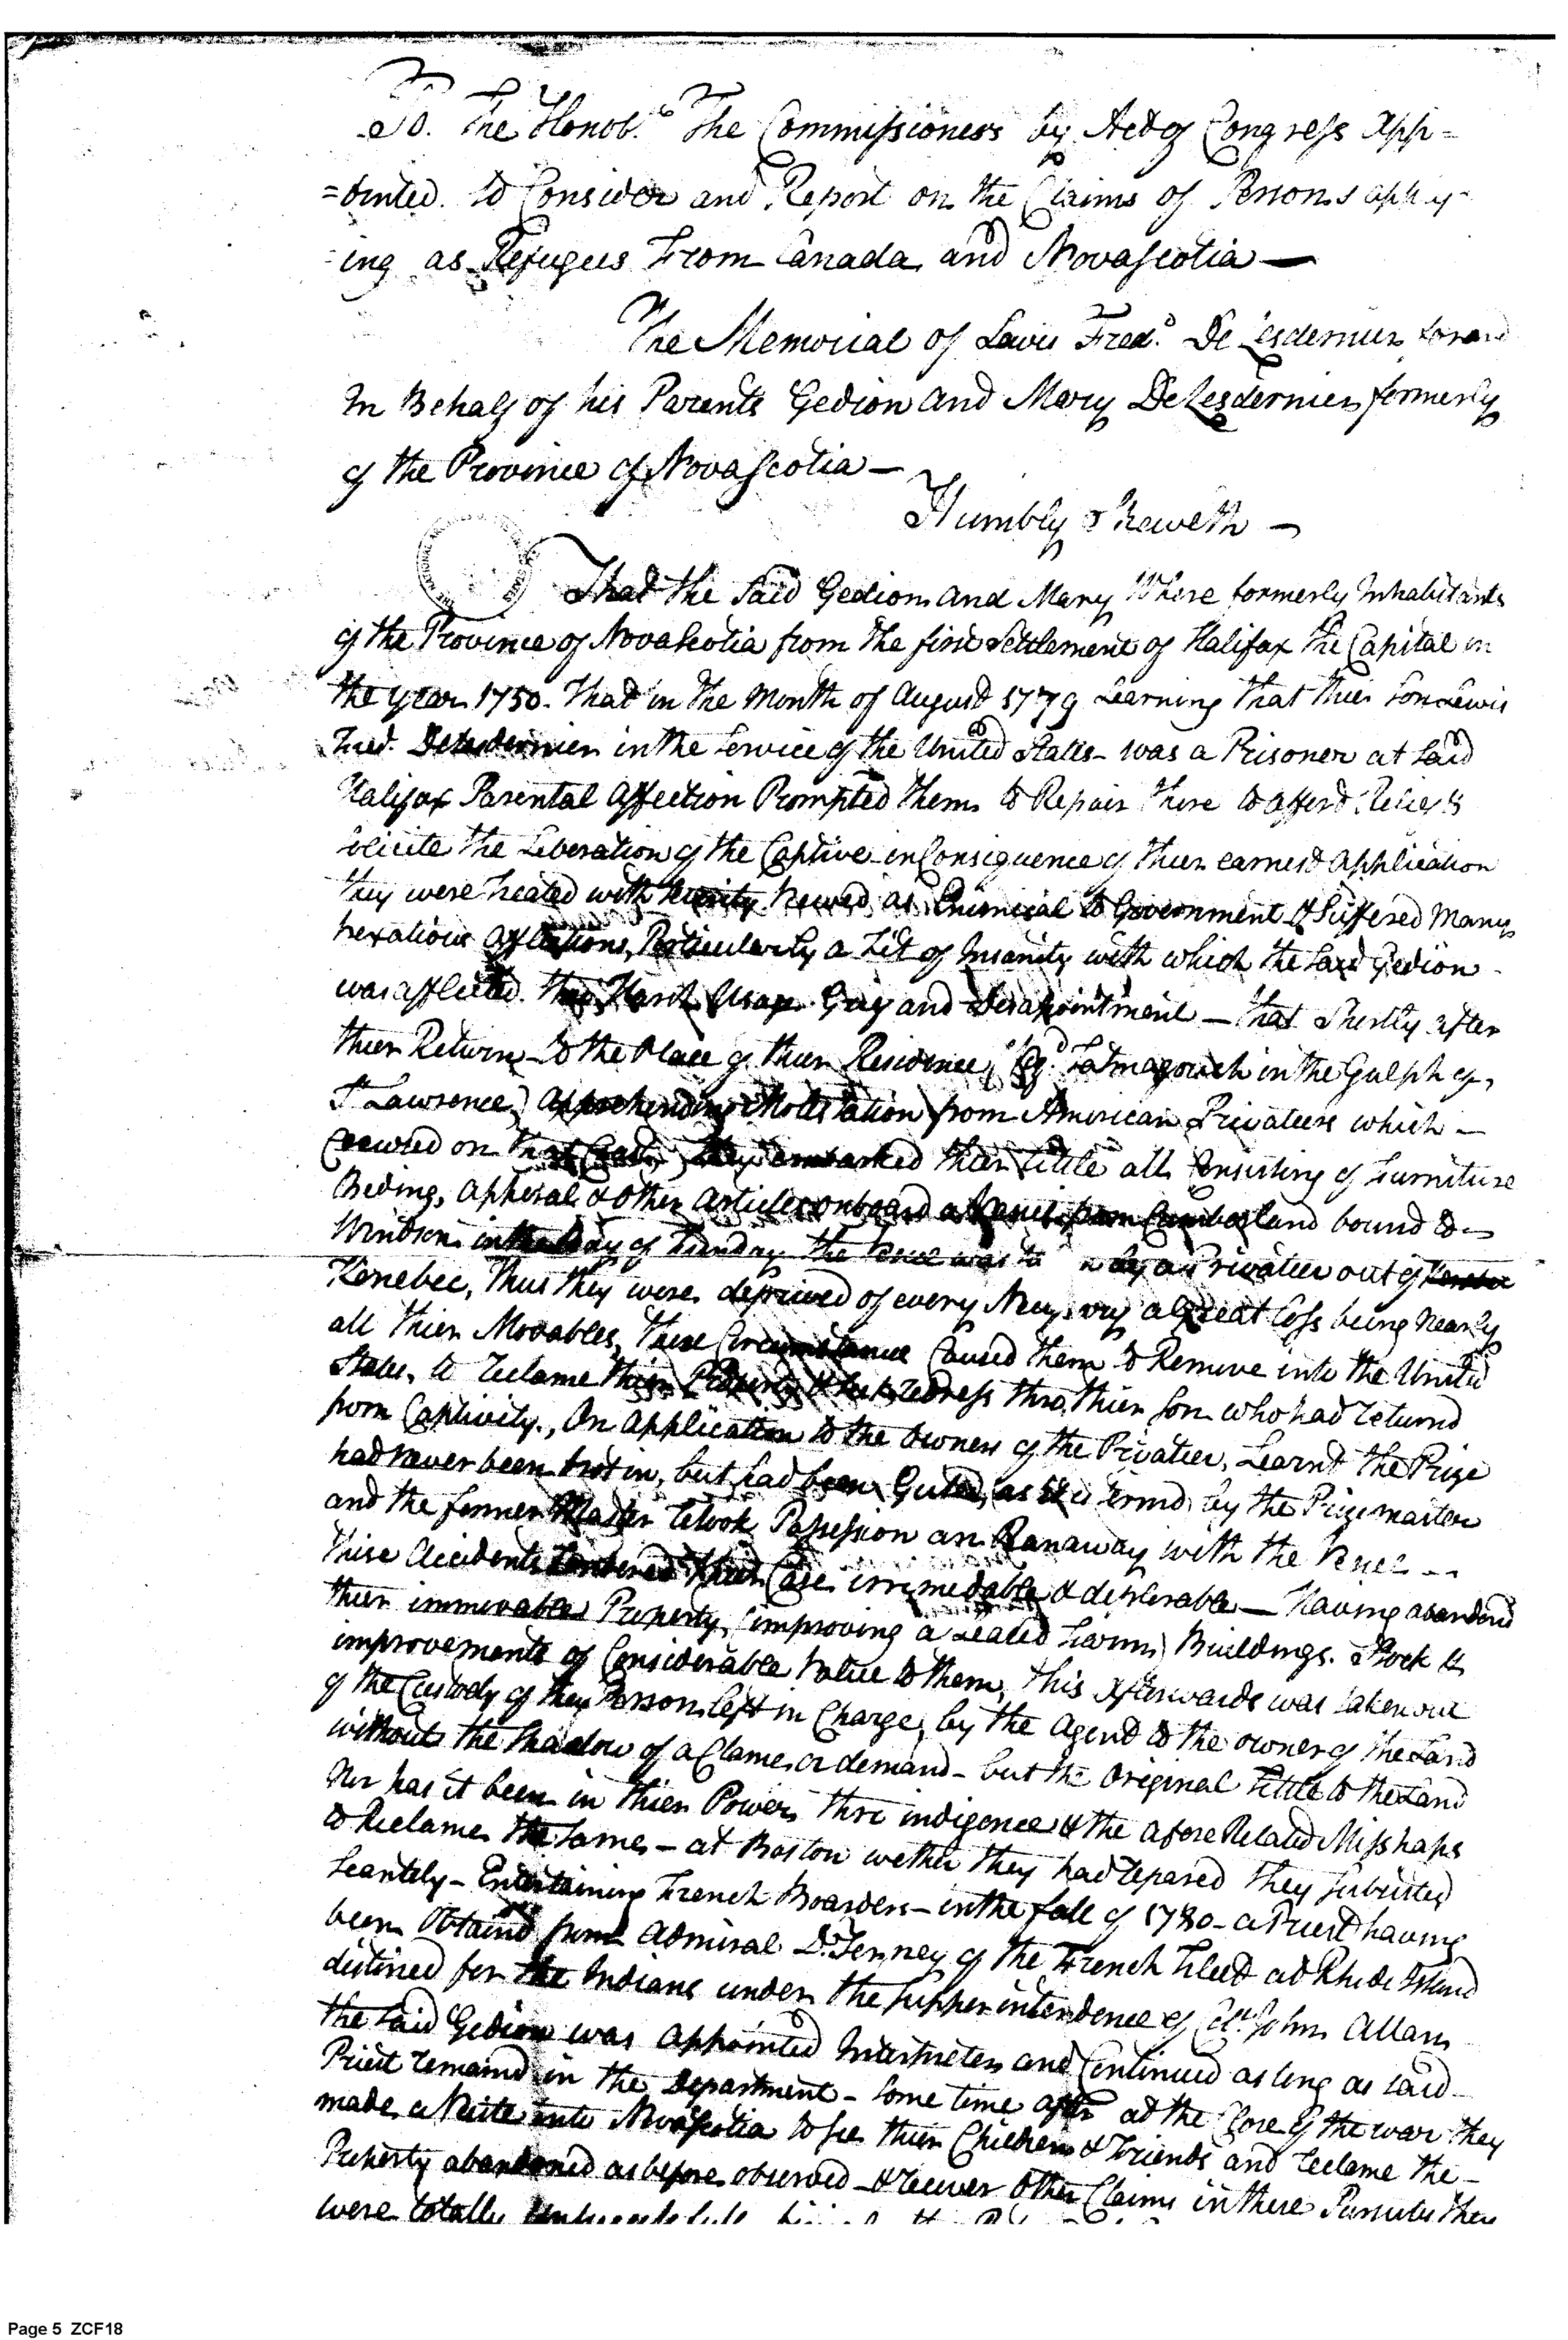 To. The Honob.le The Commissioners by Act of Congress App=
=ointed. to Consider and Report on the Claims of Persons apply-
-ing as Refugees From Canada and Novascotia —
The Memorial of Lewis Fred.k De Lesdernier for and
In Behalf of his Parents Gedion and Mary DeLesdernier formerly
of the Province of Novascotia —
Humbly Sheweth —
That the Said Gedion and Mary Where formerly Inhabitants
of the Province of Novascotia from the first Settlement of Halifax the Capital in
the year 1750. That in the Month of August 1779 Learning that thier Son Lewis
Fred. Delesdernier in the Service of the United States - was a Prisoner at Said
Halifax Parental Affection Prompted them to Repair there to afford Relief &
Solicite the Liberation of the Captive in Consequence of thier earnest application
they were treated with Viewed as Enimical to Government & Suffered Many
Vexatious Afflictions, Particularly a Fit of Insanity with which the Said Gedion
was afflicted. Harsh Usage Grief and Disapointment — that Shortly after
thier Return to the Place of thier Residence, Tatmagouch in the Gulph of,
St Lawrence) apprehending Molestation from American Privateers which —
Cruised on that Coast, they embarked thier little all Consisting of Furniture
Beding, apperal & other articles onboard a Vessel from Cumberland bound to —
Windsor in the Bay of Funday the Vessel was by a Privateer out of
Kenebec, Thus they were deprived of every a Great Loss being Nearly
all thier Movables, These Circumstance Caused them to Remove into the United
States, to Reclame thier Property & Redress thro thier Son who had returnd
from Captivity., On application to the Owners of the Privateer, Learnd the Prize
had never been brot in, but had been as is termd by the Prize master
and the former Master retook Possession an Ranaway with the Vessel —
These accidents Rendered thier Case irremedable & deplerable — Having abandond
thier immovable Property, (improving a Leased Farm) Buildings. Stock &
improvements of Considerable Value to them, This afterwards was taken out
of the Custody of the Person left in Charge, by the Agent to the owner of the Land
without the Shadow of a Clame or demand - but the Original Tittle to the Land
Nor has it been in thier Power thro indigence & the afore Related Misshaps
to Reclame the Same — at Boston wether they had repared They Subsisted
Scantely — Entertaining French Boarders — in the fall of 1780 — a Priest having
been Obtaind from Admiral D. Terney of the French Fleet at Rhode Island
distined for the Indians under the Supperintendence of Col. John Allan
the Said Gedion was appointed Interpreter and Continued as long as said —
Priest remaind in the Department — Some time after at the Close of the war they
made a Visite into Novascotia to see thier Children & Friends and reclame the —
Property abandoned as before observed — & recover Other Claims in there Pursuits they
were totally
Page 5 ZCF18